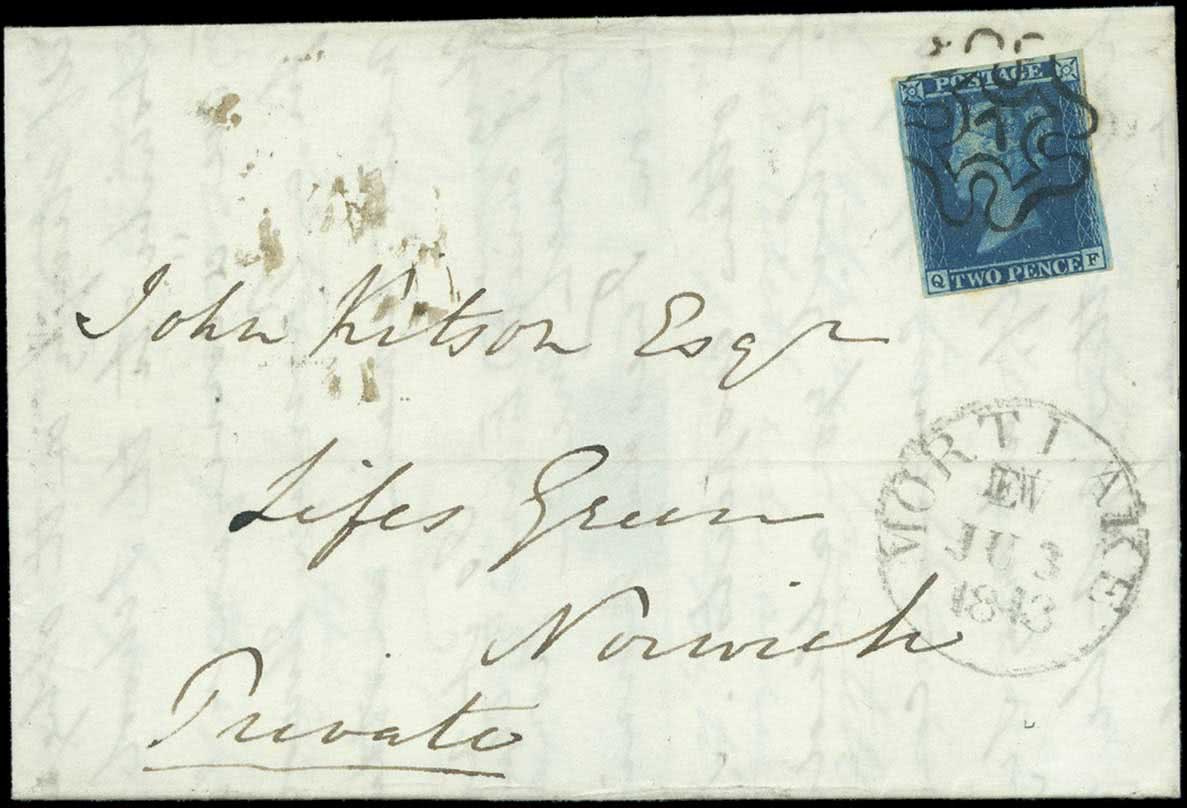 POSTAGE
7
Q TWO PENCE F
John Kitson Esqr
Lifes Green
Norwich
Private
MORTLAKE
EW
JU 3
1843